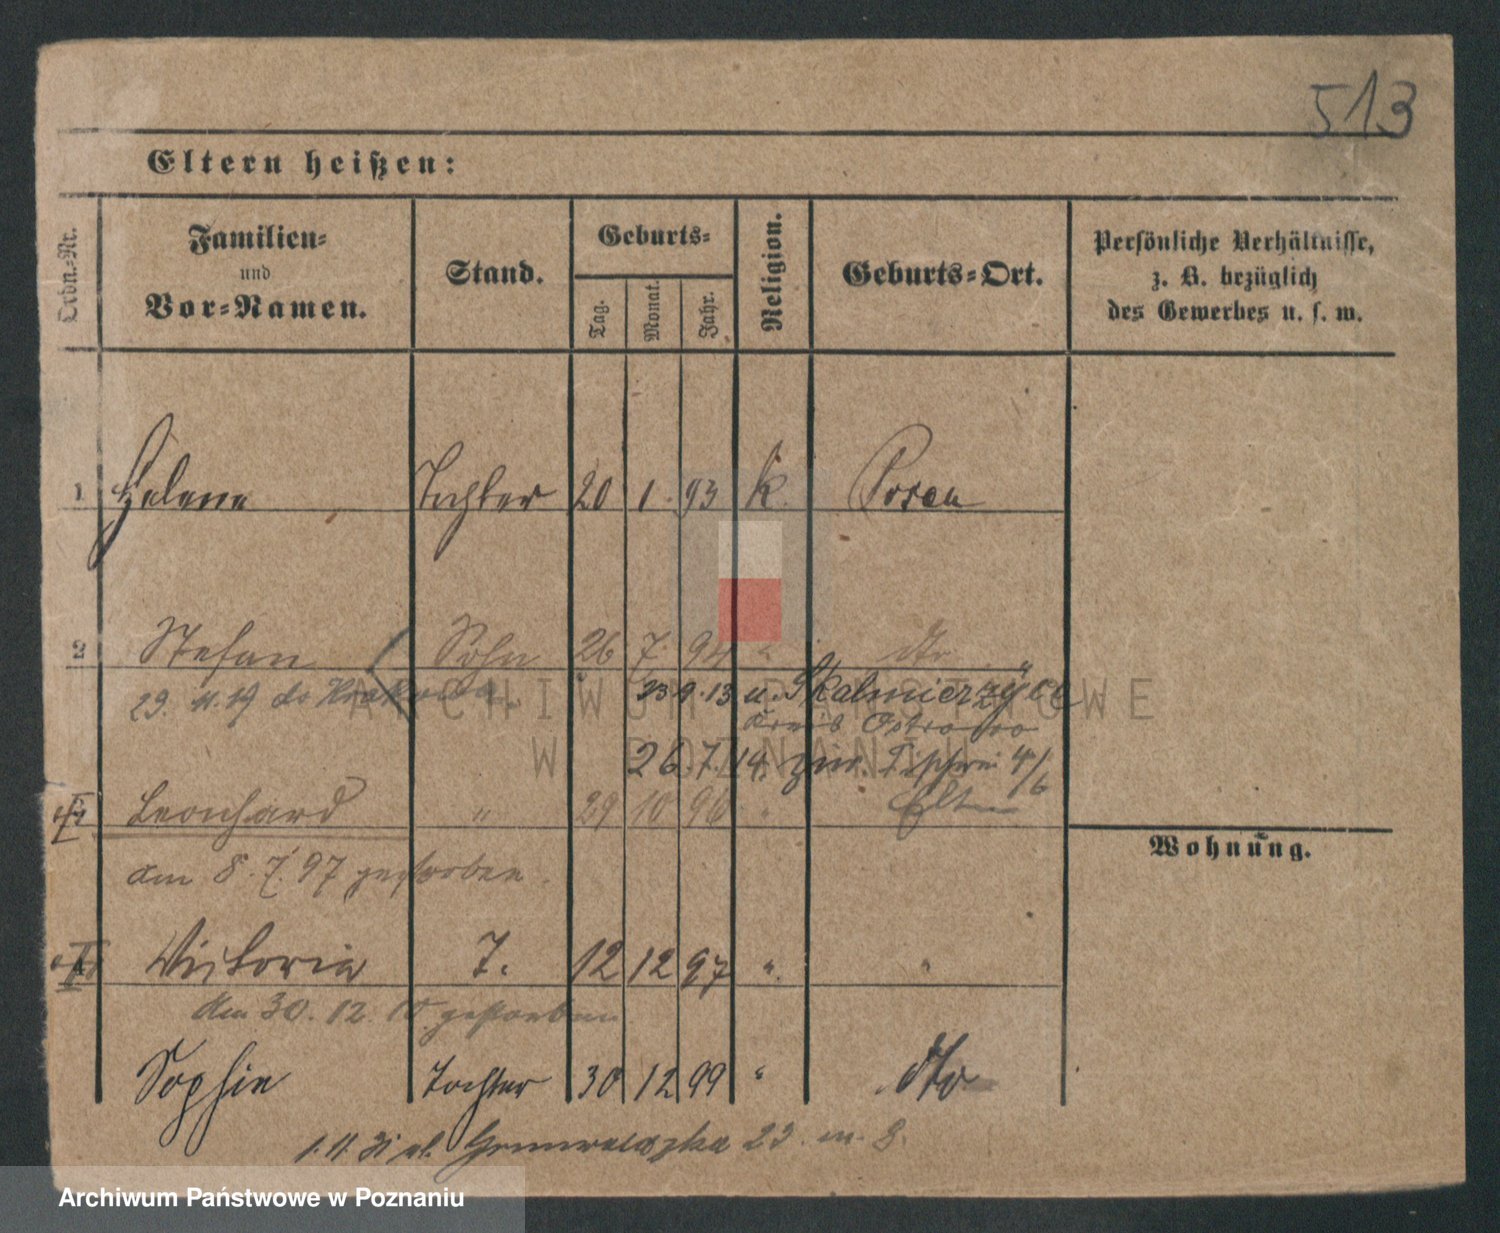 513
Eltern heißen:
Ordn.-Nr.
Familien-
und
Vor-Namen.
Stand.
Geburts-
Tag.
Monat.
Jahr.
Religion.
Geburts-Ort.
Persönliche Verhältnisse,
z. B. bezüglich
des Gewerbes u. s. w.
1 Helene Tochter 20 1. 93 k. Posen
2 Stefan Sohn 26 7. 94 " dto
29. 11. 19 do Krakowa. 23 9. 13 n. Skalmierzyce
Kreis Ostrowo
26. 7. 14. zur. 4/6
Leonhard " 29 10 96 " Eltern
am 8. 7. 97 gestorben.
Wohnung.
Victoria T. 12 12 97 " "
den 30. 12. gestorben
Sophie Tochter 30 12 99 " dto
1. 11. 31 ul. Grunwaldzka 23. m. 8.
ARCHIWUM PAŃSTWOWE
W POZNANIU
Archiwum Państwowe w Poznaniu